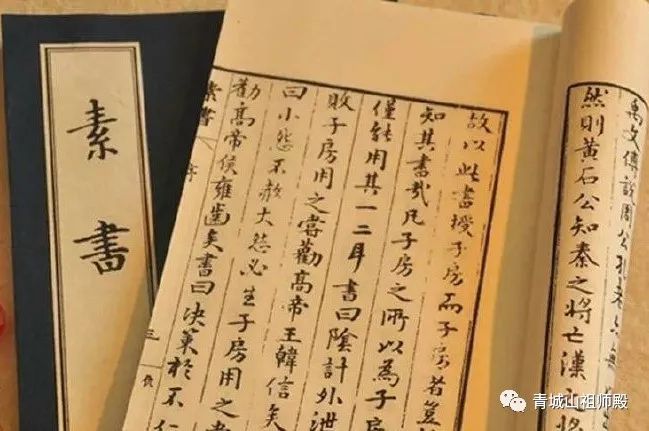 禹文傅說周公孔老亦無
然則黄石公知秦之將亡漢之將
故以此書授子房而子房者豈
知其書哉凡子房之所以為子
僅能用其一二耳書曰陰計外泄
敗子房用之嘗勸高帝王韓信矣
曰小怨不赦大怨必生子房用之
勸高帝侯雍齒矣書曰决策於不仁
素書 序 三
素書
青城山祖师殿